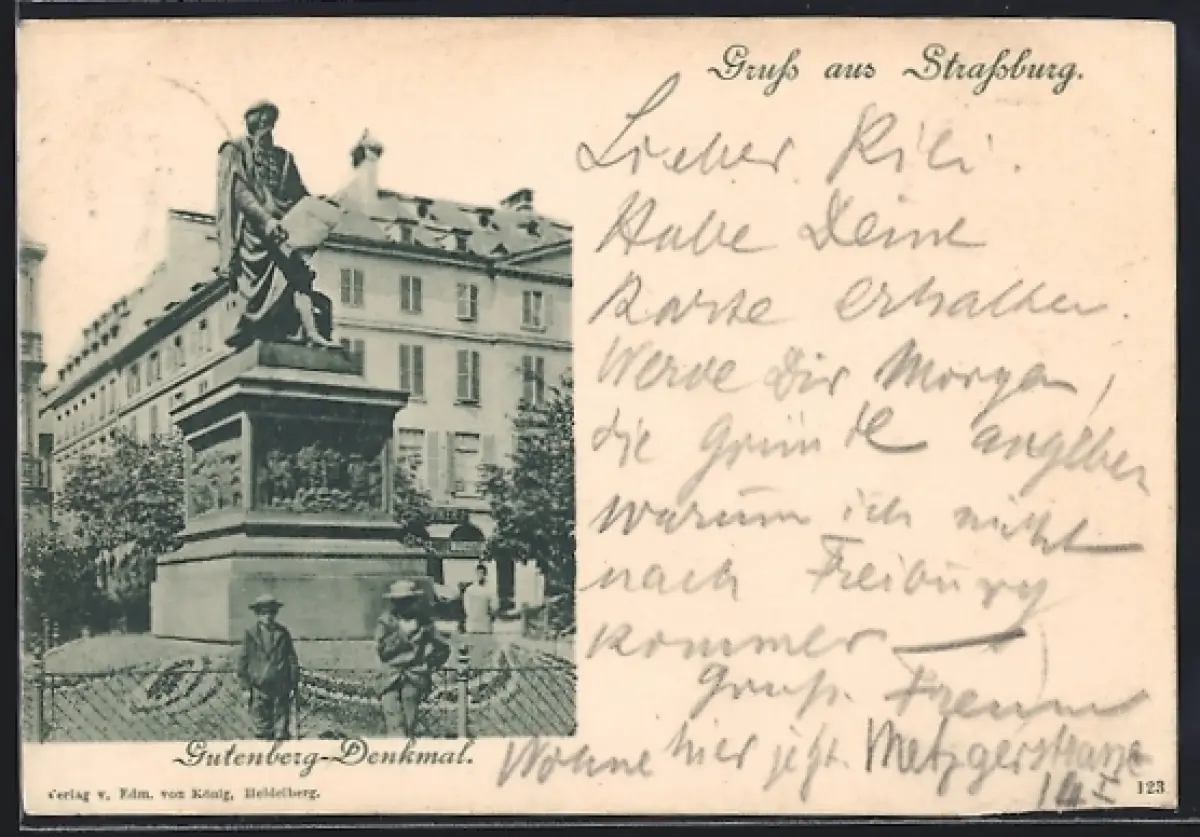 Gruß aus Straßburg.
Lieber Kili.
Habe Deine
Karte erhalten.
Werde Dir Morgen,
die Gründe angeben
warum ich nicht
nach Freiburg
kommer
Gruß.
Wohne hier jetzt Metzgerstrasse
14 I
Gutenberg-Denkmal.
Verlag v. Edm. von König, Heidelberg.
123